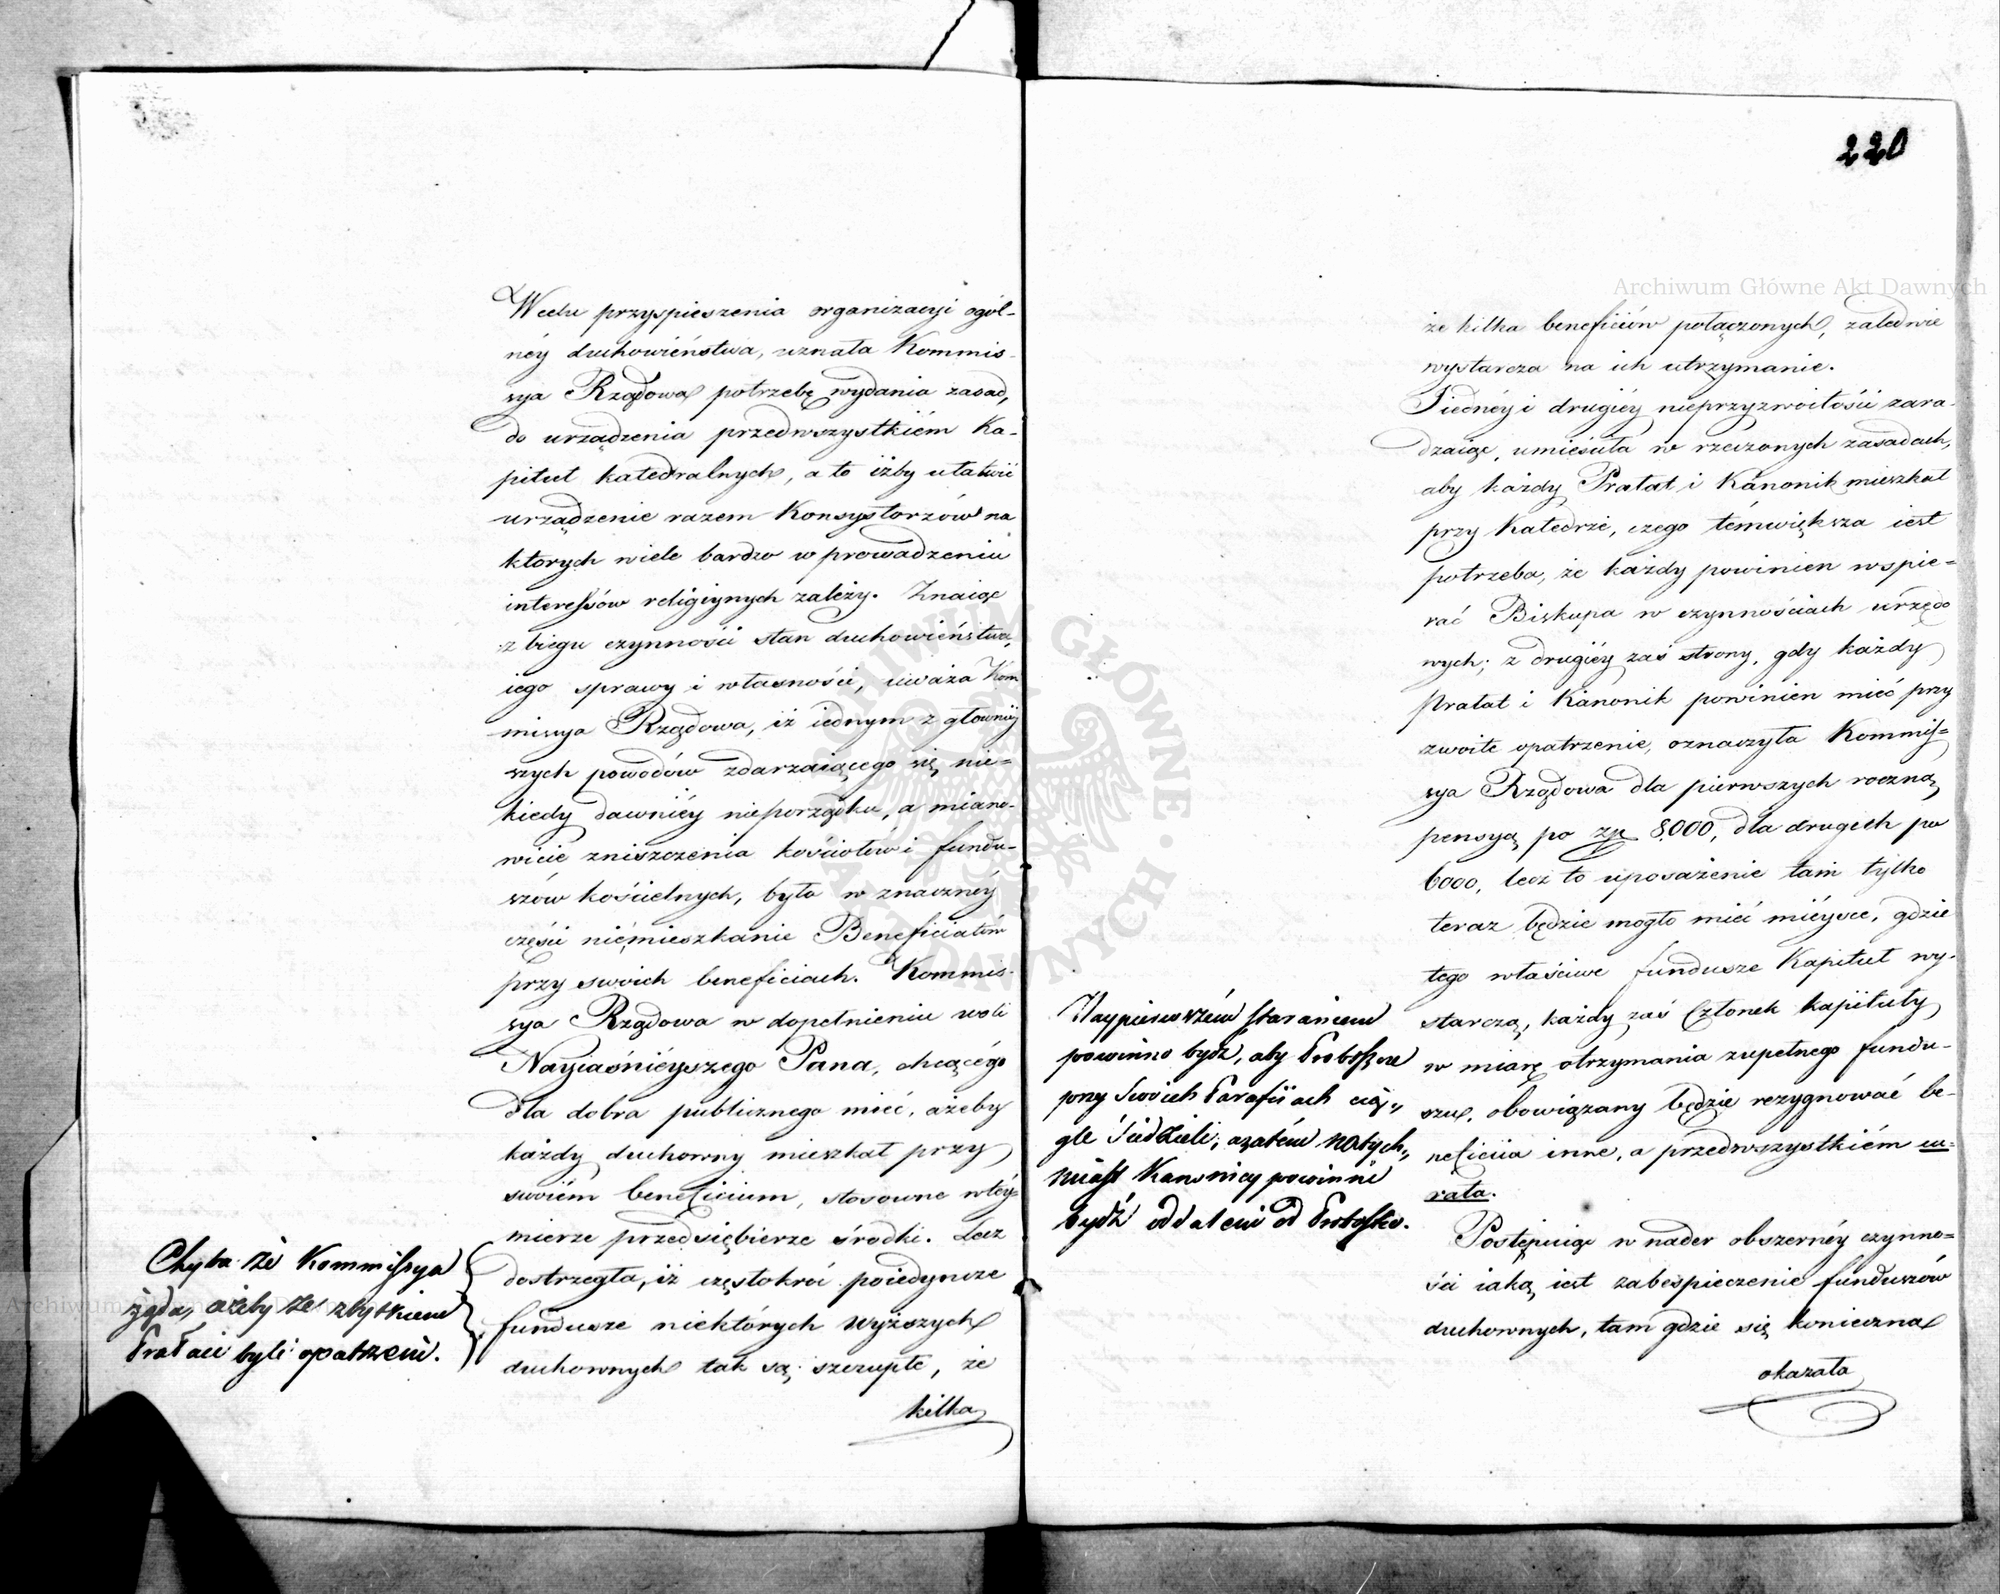 W celu przyspieszenia organizacyi ogól-
néy duchowieństwa, uznała Kommis-
sya Rządowa potrzebę wydania zasad,
do urządzenia przedewszystkiém Ka-
pituł katedralnych, a to iżby ułatwić
urządzenie razem Konsystorzów na
których wiele bardzo w prowadzeniu
interessów religiynych zależy. Znaiąc
z biegu czynności stan duchowieństwa,
iego sprawy i własności, uważa Kom
missya Rządowa, iż iednym z główniéy
szych powodów zdarzaiącego się nie-
kiedy dawniéy nieporządku, a miano-
wicie zniszczenia kościołów i fundu-
szów kościelnych, było w znacznéy
części niemieszkanie Beneficiatów
przy swoich beneficiach. Kommis-
sya Rządowa w dopełnieniu woli
Nayiaśniéyszego Pana, chcącégo
dla dobra publicznego mieć, ażeby
każdy duchowny mieszkał przy
swoiém beneficium, stosowne w téy
mierze przedsiębierze środki. Lecz
dostrzegła, iż częstokroć poiedyncze
fundusze niektórych wyższych
duchownych tak są szczupłe, że
kilka
Chyba że Kommissya
żąda, ażeby ze zbytkiem
Prałaci byli opatrzeni.
220
Archiwum Główne Akt Dawnych
że kilka beneficiów połączonych, zaledwie
wystarcza na ich utrzymanie.
Jednéy i drugiéy nieprzyzwoitości zara-
dzaiąc, umieściła w rzeczonych zasadach,
aby każdy Prałat i Kanonik mieszkał
przy Katedrze, czego témwiększa iest
potrzeba, że każdy powinien wspie-
rać Biskupa w czynnościach urzędo
wych; z drugiéy zaś strony, gdy każdy
Prałat i Kanonik powinien mieć przy
zwoite opatrzenie, oznaczyła Kommis-
sya Rządowa dla pierwszych roczną
pensyą po zp 8000, dla drugich po
6000, lecz to uposażenie tam tylko
teraz będzie mogło mieć miéysce, gdzie
tego właściwe fundusze Kapituł wy-
starczą, każdy zaś Członek kapituły
w miarę otrzymania zupełnego fundu-
szu, obowiązany będzie rezygnować be-
neficiia inne, a przedewszystkiém cu-
rata.
Postępuiąc w nader obszernéy czynno-
ści iaką iest zabespieczenie funduszów
duchownych, tam gdzie się konieczna
okazała
Naypierwszém staraniem
powinno bydź, aby Proboszcze
przy swoich Parafiiach cią-
gle siedzieli; a zatém natych-
miast Kanonicy powinni
bydź oddaleni od Probostw.
Archiwum Główne Akt Dawnych
ARCHIWUM GŁÓWNE AKT DAWNYCH